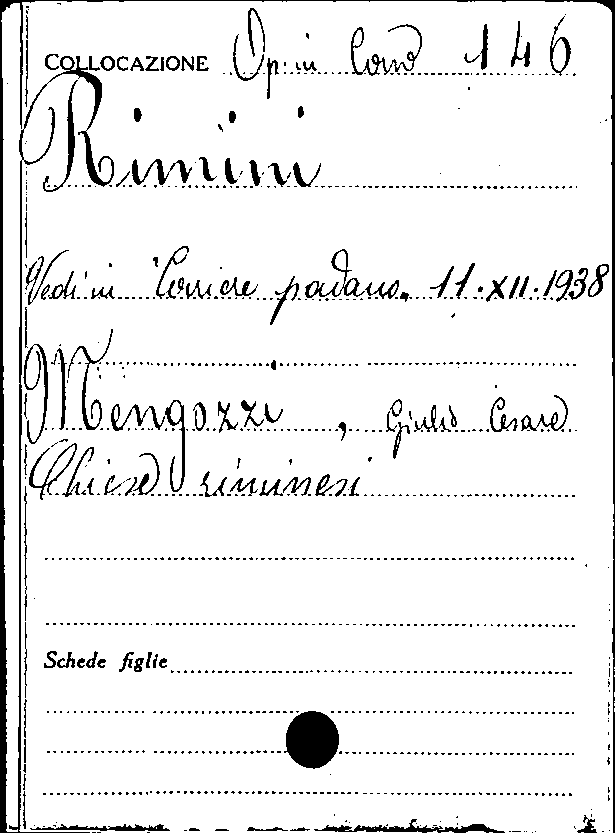 COLLOCAZIONE Op. in 146
Rimini
Vedi in "Corriere padano" 11.XII.1938
Mengozzi, Giulio Cesare
Chiese riminesi
Schede figlie